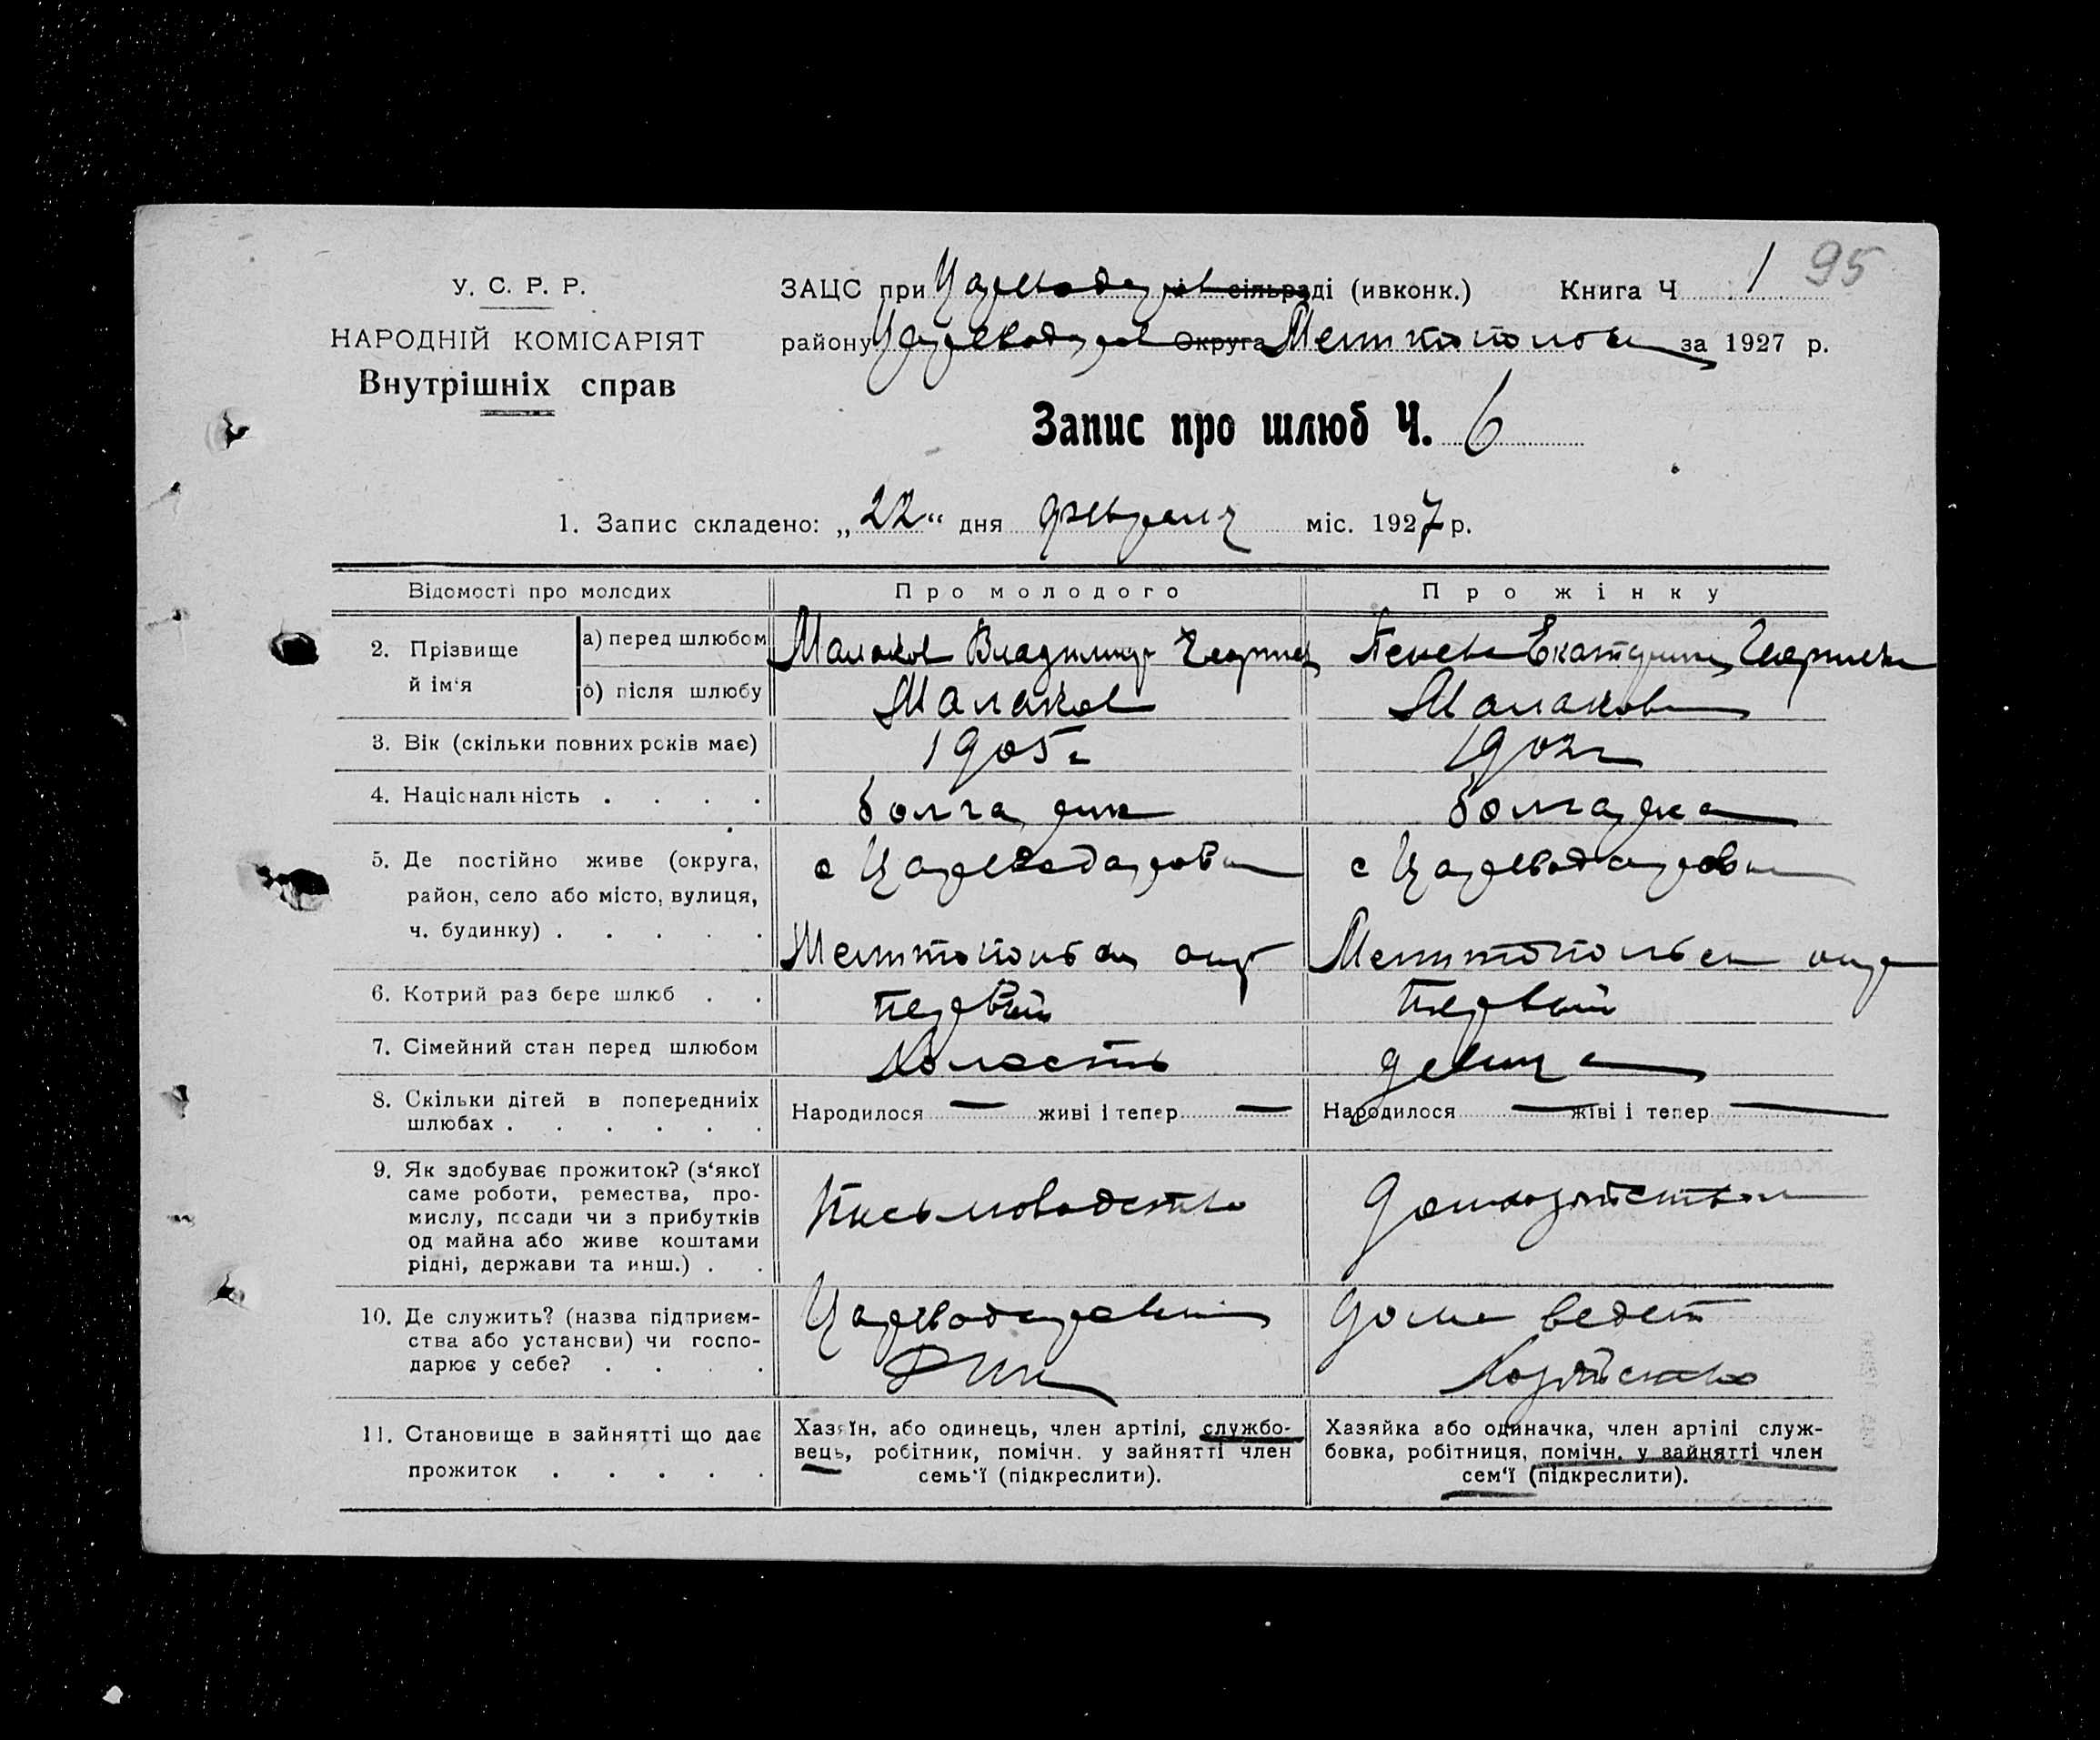 1 95
У. С. Р. Р.
ЗАЦС при Царевода сільраді (ивконк.) Книга Ч
НАРОДНІЙ КОМІСАРІЯТ
району Царевода Округа за 1927 р.
Внутрішніх справ
Запис про шлюб Ч. 6
1. Запис складено: „22“ дня февраля міс. 1927 р.
Відомості про молодих Про молодого Про жінку
2. Прізвище й ім‘я
а) перед шлюбом Малаков Владимир Георгиев Екатерина Георгиевна
б) після шлюбу Малаков Малакова
3. Вік (скільки повних років має) 1905г 1902г
4. Національність . . . . болгарин болгарка
5. Де постійно живе (округа,
район, село або місто, вулиця,
ч. будинку) . . . . .
с Цареводаровка с Цареводаровка
Мелитопольск окр Мелитопольск окр
6. Котрий раз бере шлюб . . Первый Первый
7. Сімейний стан перед шлюбом Холость девица
8. Скільки дітей в попередниіх
шлюбах . . . . . .
Народилося — живі і тепер — Народилося — живі і тепер —
9. Як здобуває прожиток? (з‘якої
саме роботи, ремества, про-
мислу, посади чи з прибутків
од майна або живе коштами
рідні, держави та инш.) . .
Письмоводство Домхозяйством
10. Де служить? (назва підприєм-
ства або установи) чи госпо-
дарює у себе? . . . .
Цареводаровский Дома ведет
РИК Хозяйство
11. Становище в зайнятті що дає
прожиток . . . . .
Хазяїн, або одинець, член артілі, службо-
вець, робітник, помічн. у зайнятті член
семь‘ї (підкреслити).
Хазяйка або одиначка, член артілі служ-
бовка, робітниця, помічн. у зайнятті член
сем‘ї (підкреслити).